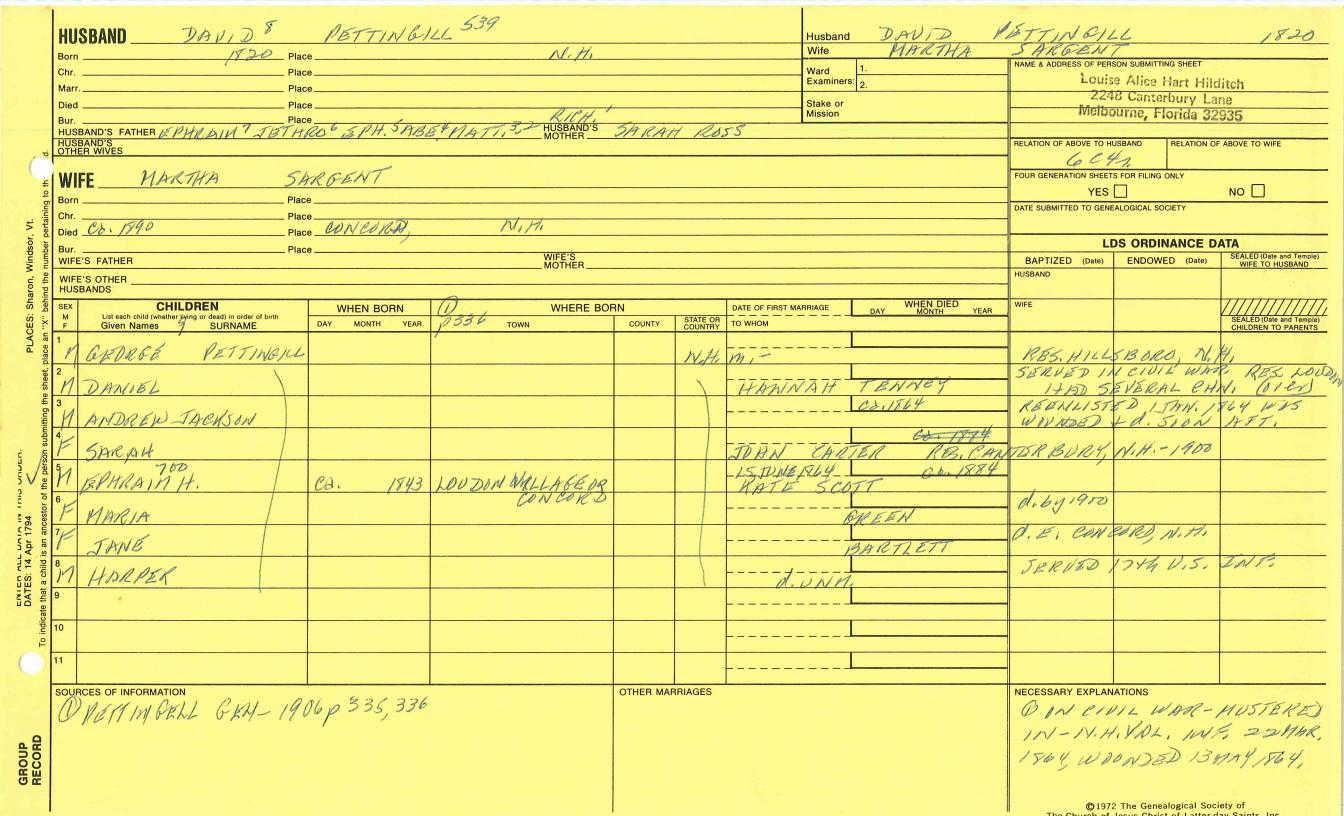 HUSBAND DAVID 8 PETTINGILL 539
Born 1820 Place N.H.
Chr. Place
Marr. Place
Died Place
Bur. Place
HUSBAND'S FATHER EPHRAIM 7 JETHRO 6 EPH. 5 ABE 4 MATT. 3,2 RICH. 1 HUSBAND'S MOTHER SARAH ROSS
HUSBAND'S OTHER WIVES
Husband DAVID PETTINGILL 1820
Wife MARTHA SARGENT
Ward Examiners: 1.
2.
Stake or Mission
NAME & ADDRESS OF PERSON SUBMITTING SHEET
Louise Alice Hart Hilditch
2248 Canterbury Lane
Melbourne, Florida 32935
RELATION OF ABOVE TO HUSBAND RELATION OF ABOVE TO WIFE
6C4r
FOUR GENERATION SHEETS FOR FILING ONLY
YES NO
DATE SUBMITTED TO GENEALOGICAL SOCIETY
WIFE MARTHA SARGENT
Born Place
Chr. Place
Died Ca. 1890 Place CONCORD, N.H.
Bur. Place
WIFE'S FATHER WIFE'S MOTHER
WIFE'S OTHER HUSBANDS
LDS ORDINANCE DATA
BAPTIZED (Date) ENDOWED (Date) SEALED (Date and Temple) WIFE TO HUSBAND
HUSBAND
WIFE
SEALED (Date and Temple) CHILDREN TO PARENTS
SEX M F
CHILDREN
List each child (whether living or dead) in order of birth
Given Names 9 SURNAME
WHEN BORN
DAY MONTH YEAR
① p336
WHERE BORN
TOWN COUNTY STATE OR COUNTRY
DATE OF FIRST MARRIAGE
TO WHOM
WHEN DIED
DAY MONTH YEAR
1 M GEORGE PETTINGILL N.H. m.- RES. HILLSBORO, N.H.
2 M DANIEL HANNAH TENNEY SERVED IN CIVIL WAR. RES. LOUDON
HAD SEVERAL CHN.
3 M ANDREW JACKSON Ca. 1864 REENLISTED 1 JAN. 1864 WAS
WOUNDED & d. SOON AFT.
4 F SARAH Ca. 1884 JOHN CARTER RES. CANTERBURY, N.H.-1900
5 M EPHRAIM H. 700 Ca. 1843 LOUDON VILLAGE OR
CONCORD 15 JUNE 1864 Ca. 1884
KATE SCOTT
6 F MARIA GREEN d. by 1900
7 F JANE BARTLETT d. E. CONCORD, N.H.
8 M HARPER d. UNM. SERVED 17th U.S. INF.
9
10
11
SOURCES OF INFORMATION
① PETTINGELL GEN- 1906 p 335, 336
OTHER MARRIAGES
NECESSARY EXPLANATIONS
① IN CIVIL WAR-MUSTERED
IN-N.H. VOL. INF. 22 MAR.
1864, WOUNDED 13 MAY 1864.
©1972 The Genealogical Society of
The Church of Jesus Christ of Latter-day Saints, Inc.
PLACES: Sharon, Windsor, Vt.
ENTER ALL DATA IN THIS ORDER:
DATES: 14 Apr 1794
To indicate that a child is an ancestor of the person submitting the sheet, place an "X" behind the number pertaining to
GROUP RECORD